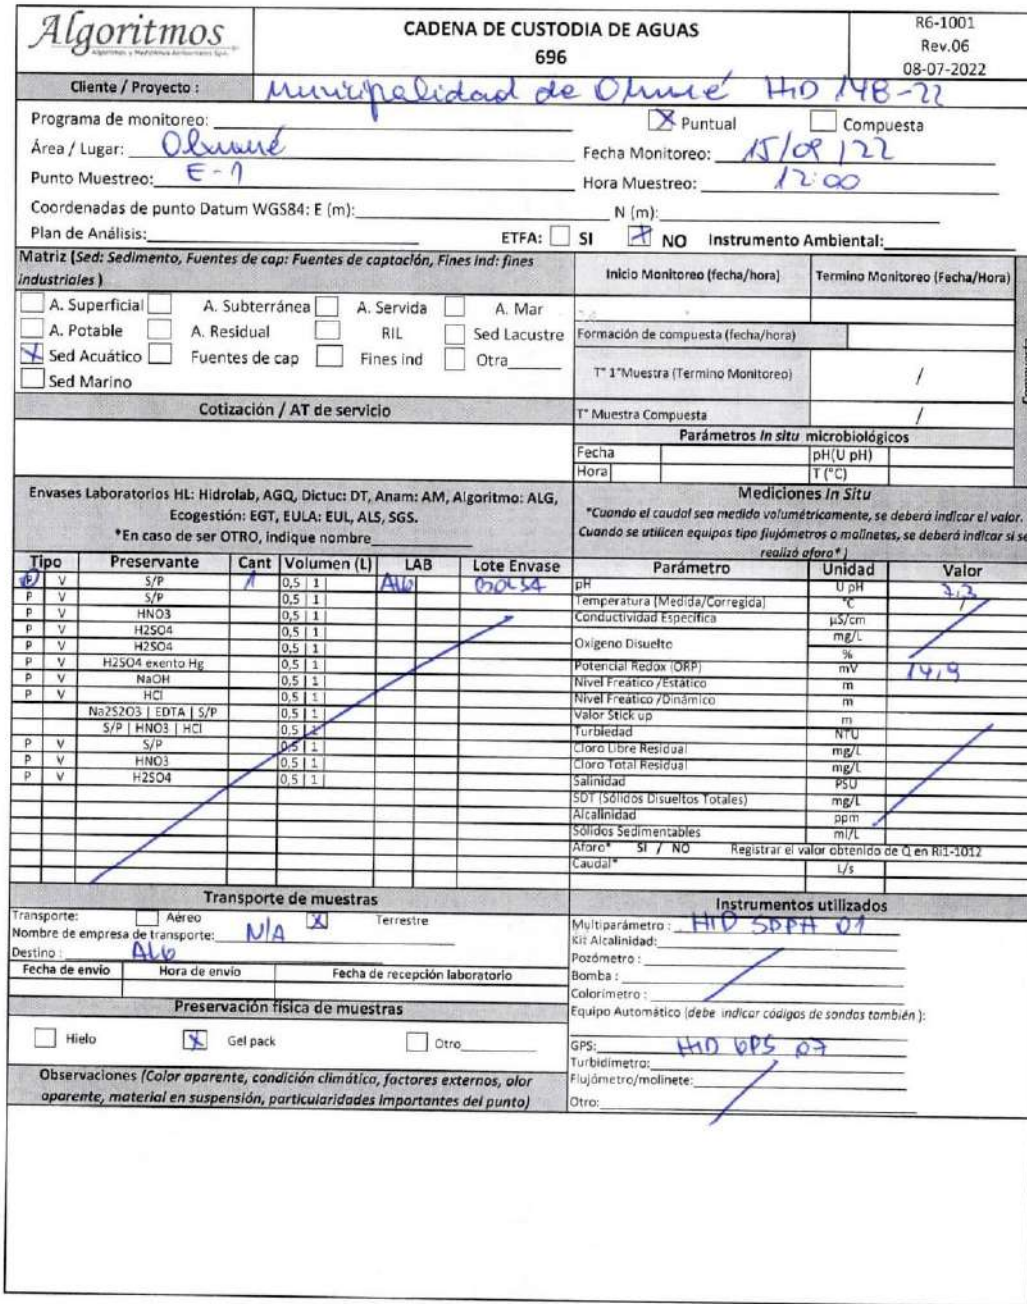 Algoritmos
CADENA DE CUSTODIA DE AGUAS
696
R6-1001
Rev.06
08-07-2022
Cliente / Proyecto : Municipalidad de Olmué HID 148-22
Programa de monitoreo:
X Puntual Compuesta
Área / Lugar: Olmué
Fecha Monitoreo: 15/09/22
Punto Muestreo: E-1
Hora Muestreo: 12:00
Coordenadas de punto Datum WGS84: E (m): N (m):
Plan de Análisis: ETFA: SI X NO Instrumento Ambiental:
Matriz (Sed: Sedimento, Fuentes de cap: Fuentes de captación, Fines ind: fines
industriales )
A. Superficial A. Subterránea A. Servida A. Mar
A. Potable A. Residual RIL Sed Lacustre
X Sed Acuático Fuentes de cap Fines ind Otra
Sed Marino
Inicio Monitoreo (fecha/hora) Termino Monitoreo (Fecha/Hora)
Formación de compuesta (fecha/hora)
T° 1°Muestra (Termino Monitoreo) /
T° Muestra Compuesta /
Cotización / AT de servicio
Parámetros In situ microbiológicos
Fecha pH(U pH)
Hora T (°C)
Envases Laboratorios HL: Hidrolab, AGQ, Dictuc: DT, Anam: AM, Algoritmo: ALG,
Ecogestión: EGT, EULA: EUL, ALS, SGS.
*En caso de ser OTRO, indique nombre
Tipo Preservante Cant Volumen (L) LAB Lote Envase
P V S/P 1 0,5 | 1 | ALG BOLSA
P V S/P 0,5 | 1 |
P V HNO3 0,5 | 1 |
P V H2SO4 0,5 | 1 |
P V H2SO4 0,5 | 1 |
P V H2SO4 exento Hg 0,5 | 1 |
P V NaOH 0,5 | 1 |
P V HCl 0,5 | 1 |
Na2S2O3 | EDTA | S/P 0,5 | 1 |
S/P | HNO3 | HCl 0,5 | 1 |
P V S/P 0,5 | 1 |
P V HNO3 0,5 | 1 |
P V H2SO4 0,5 | 1 |
Mediciones In Situ
*Cuando el caudal sea medido volumétricamente, se deberá indicar el valor.
Cuando se utilicen equipos tipo flujómetros o molinetes, se deberá indicar si se
realizó aforo* )
Parámetro Unidad Valor
pH U pH 7,3
Temperatura (Medida/Corregida) °C /
Conductividad Especifica µS/cm
Oxígeno Disuelto mg/L
%
Potencial Redox (ORP) mV 14,9
Nivel Freático /Estático m
Nivel Freático /Dinámico m
Valor Stick up m
Turbiedad NTU
Cloro Libre Residual mg/L
Cloro Total Residual mg/L
Salinidad PSU
SDT (Sólidos Disueltos Totales) mg/L
Alcalinidad ppm
Sólidos Sedimentables ml/L
Aforo* SI / NO Registrar el valor obtenido de Q en Ri1-1012
Caudal* L/s
Transporte de muestras
Transporte: Aéreo X Terrestre
Nombre de empresa de transporte: N/A
Destino : ALG
Fecha de envio Hora de envío Fecha de recepción laboratorio
Preservación física de muestras
Hielo X Gel pack Otro
Observaciones (Color aparente, condición climática, factores externos, olor
aparente, material en suspensión, particularidades importantes del punto)
Instrumentos utilizados
Multiparámetro : HID SDPH 01
Kit Alcalinidad:
Pozómetro :
Bomba :
Colorimetro :
Equipo Automático (debe indicar códigos de sondas también ):
GPS: HID GPS 07
Turbidímetro:
Flujómetro/molinete:
Otro: